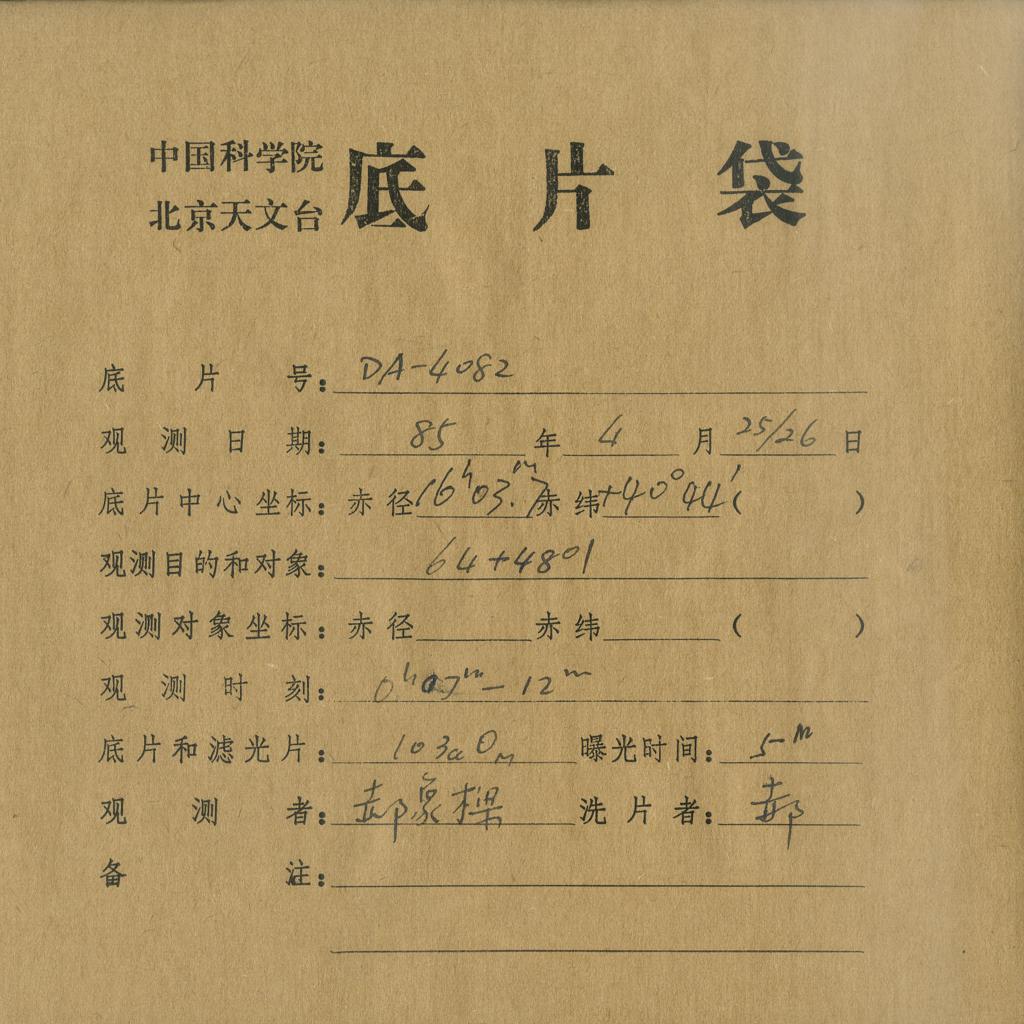 中国科学院
北京天文台
底片袋
底片号：DA-4082
观测日期：85年4月25/26日
底片中心坐标：赤径16ʰ03.ᵐ7赤纬+40°44′（ ）
观测目的和对象：64+4801
观测对象坐标：赤径 赤纬 （ ）
观测时刻：0ʰ07ᵐ-12ᵐ
底片和滤光片：103aOₘ 曝光时间：5ᵐ
观测者：郝象樑 洗片者：郝
备注：